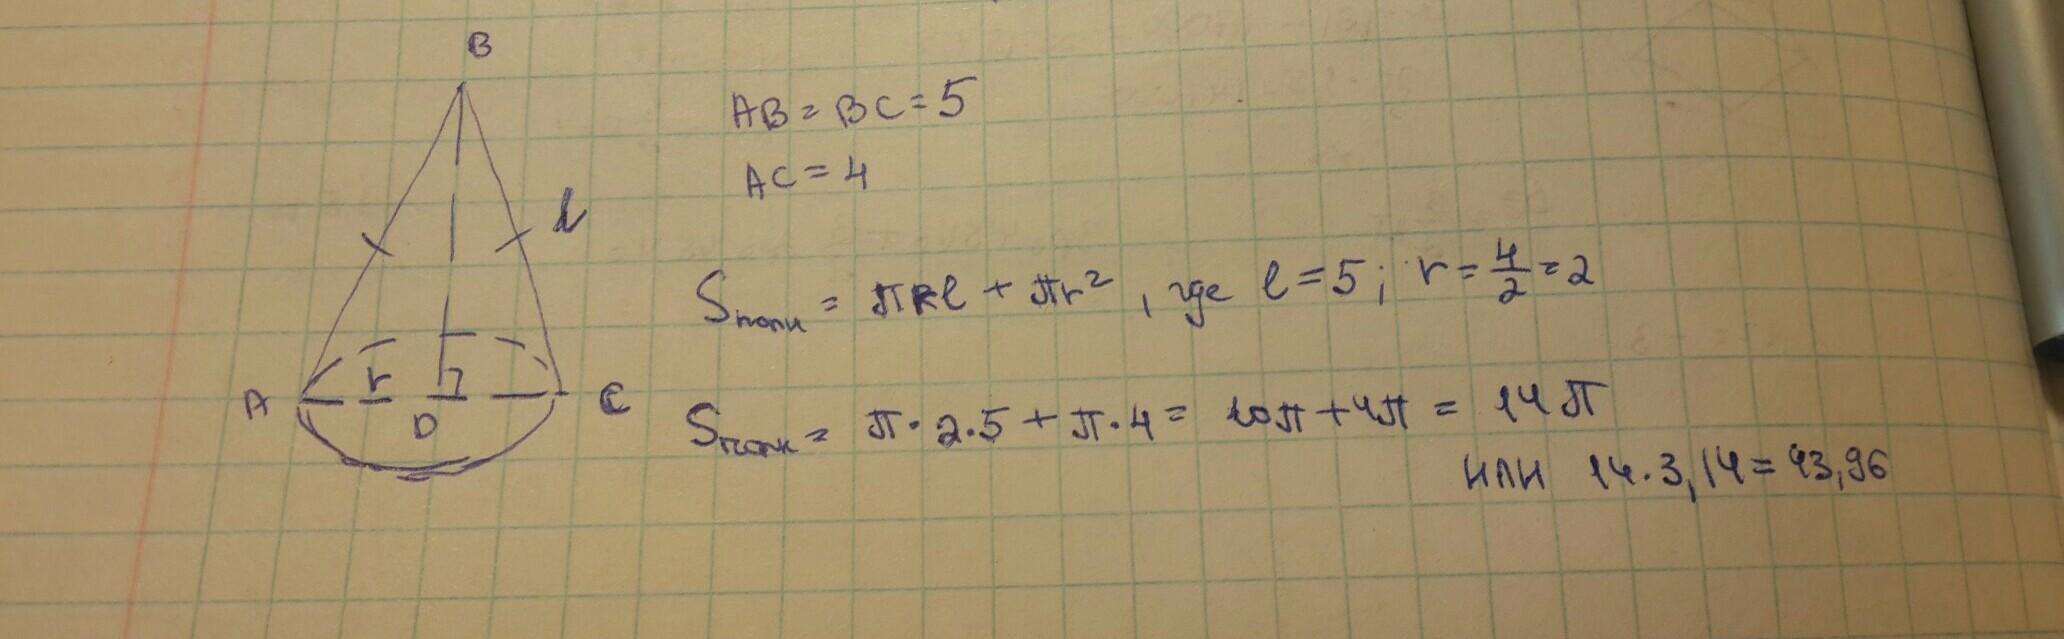 B
AB = BC = 5
AC = 4
l
Sполн = πRl + πr² , где l = 5 ; r = 4/2 = 2
A r D C
Sполн = π · 2 · 5 + π · 4 = 10π + 4π = 14π
или 14 · 3,14 = 43,96